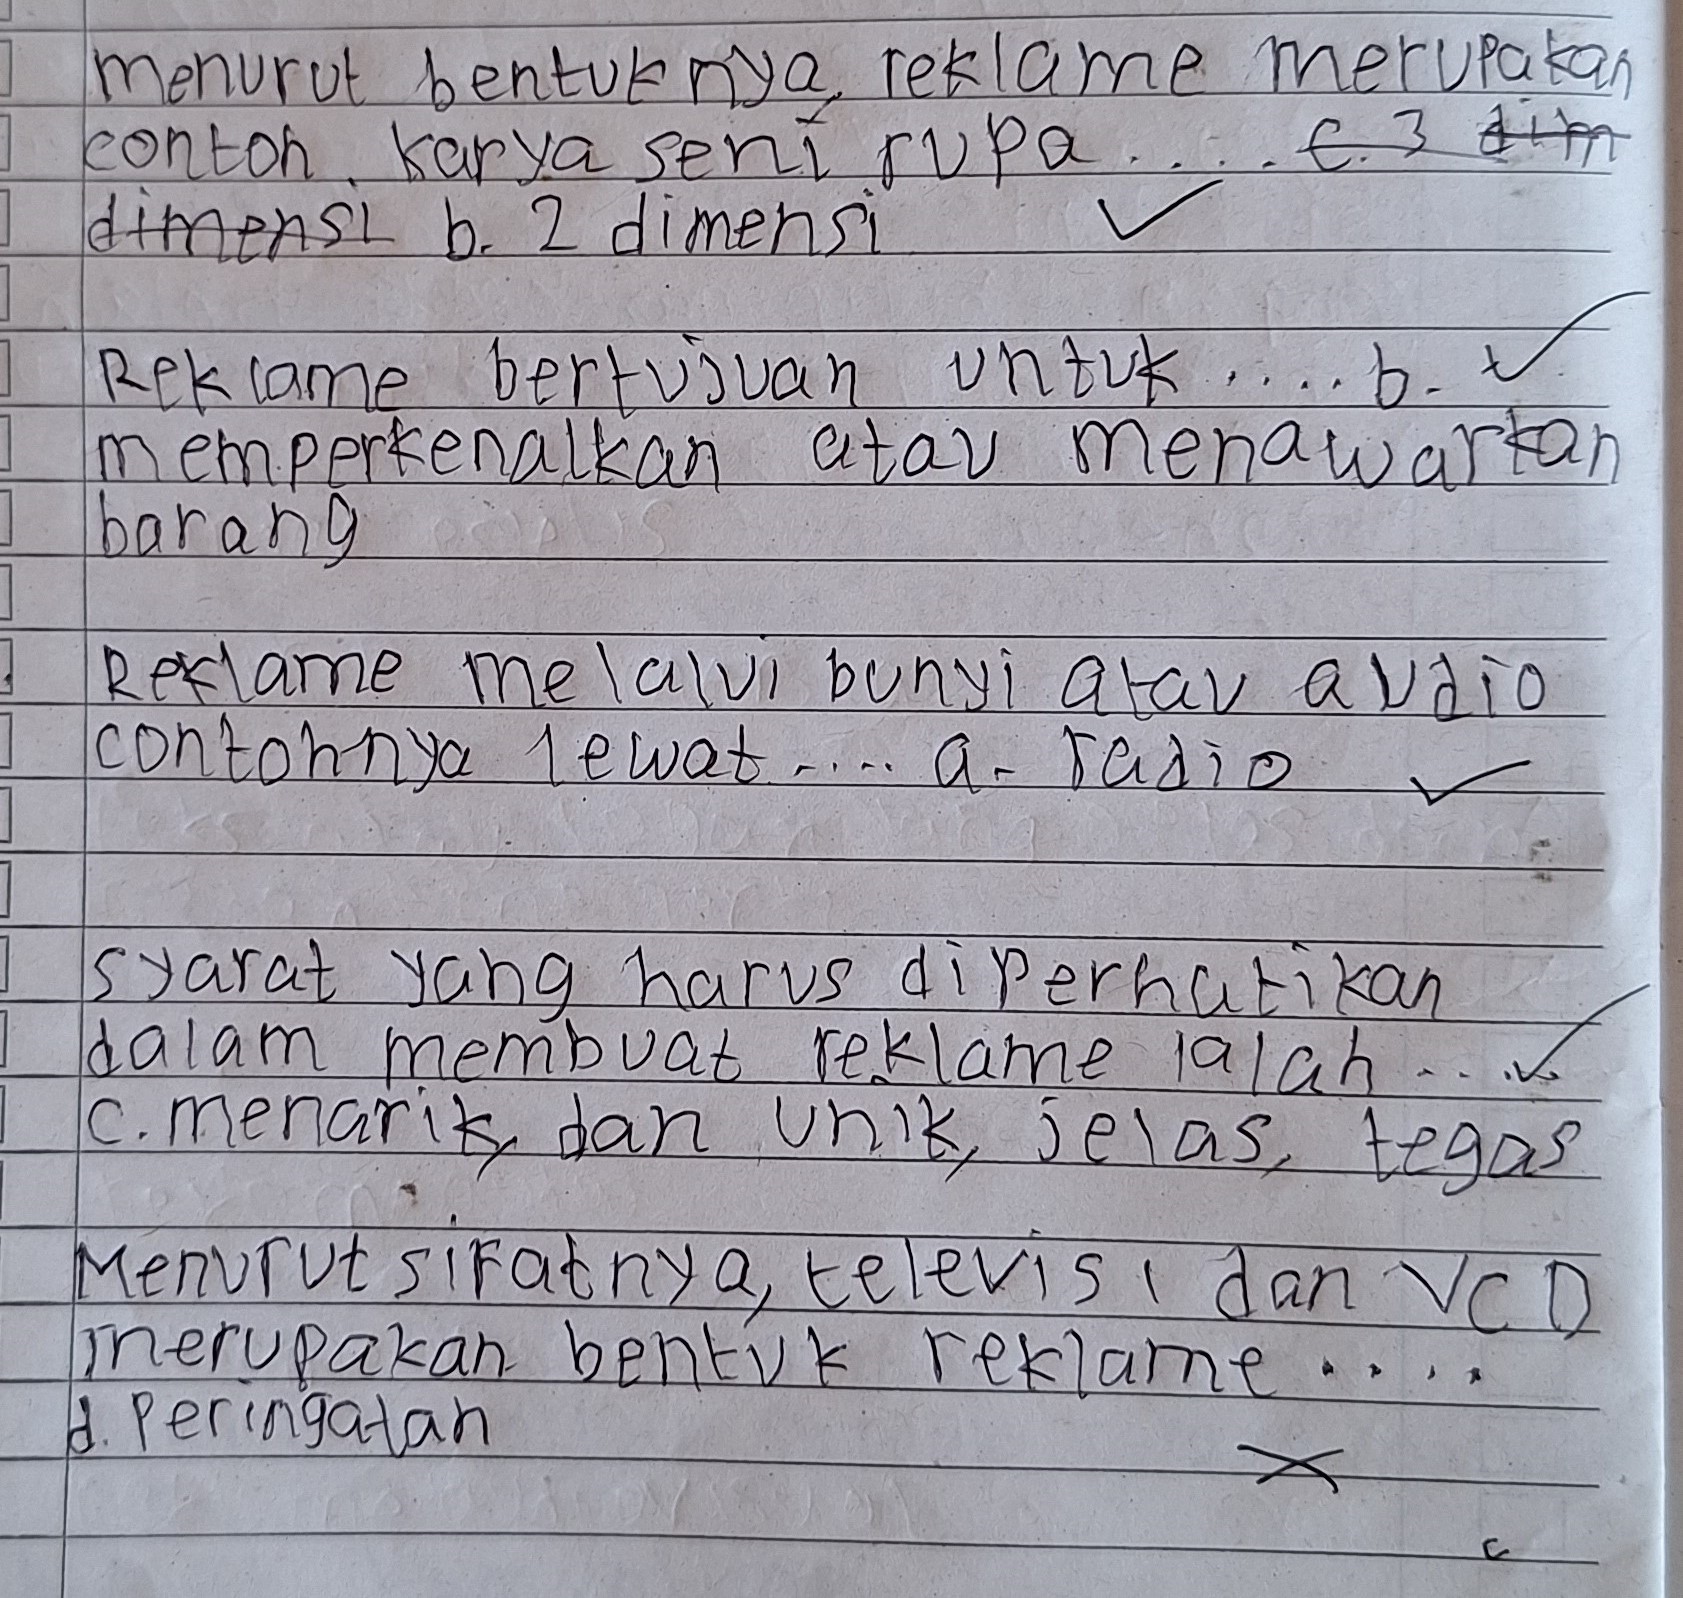 menurut bentuknya, reklame merupakan
contoh karya seni rupa ..... c. 3 dim
dimensi b. 2 dimensi
Reklame bertujuan untuk .... b.
memperkenalkan atau menawarkan
barang
Reklame melalui bunyi atau audio
contohnya lewat .... a. radio
syarat yang harus diperhatikan
dalam membuat reklame ialah ...
c. menarik, dan unik, jelas, tegas
Menurut sifatnya, televisi dan VCD
merupakan bentuk reklame ....
d. Peringatan
c